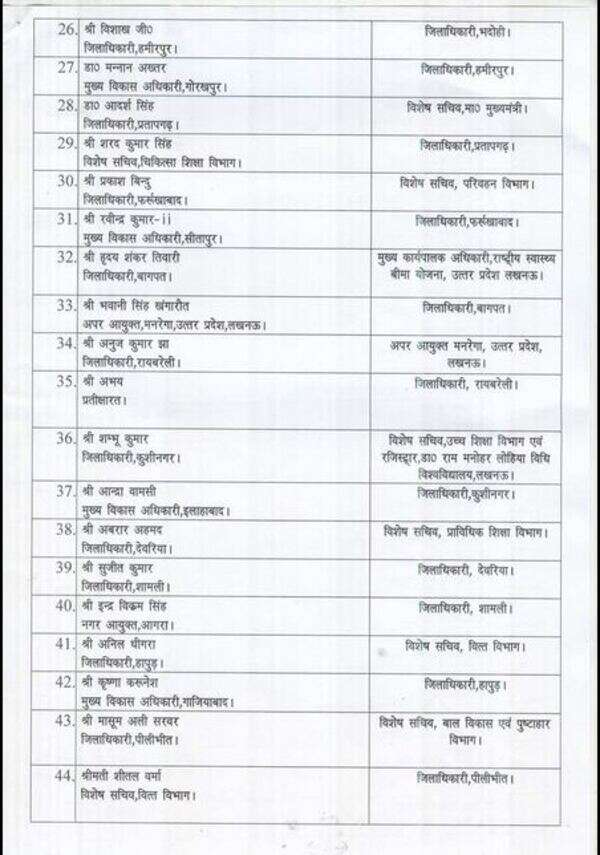 26. श्री विशाख जी०
जिलाधिकारी,हमीरपुर।
जिलाधिकारी,भदोही।
27. डा० मन्नान अख्तर
मुख्य विकास अधिकारी,गोरखपुर।
जिलाधिकारी,हमीरपुर।
28. डा० आदर्श सिंह
जिलाधिकारी,प्रतापगढ़।
विशेष सचिव,मा० मुख्यमंत्री।
29. श्री शरद कुमार सिंह
विशेष सचिव,चिकित्सा शिक्षा विभाग।
जिलाधिकारी,प्रतापगढ़।
30. श्री प्रकाश बिन्दु
जिलाधिकारी,फर्रुखाबाद।
विशेष सचिव, परिवहन विभाग।
31. श्री रवीन्द्र कुमार-ii
मुख्य विकास अधिकारी,सीतापुर।
जिलाधिकारी,फर्रुखाबाद।
32. श्री हृदय शंकर तिवारी
जिलाधिकारी,बागपत।
मुख्य कार्यपालक अधिकारी,राष्ट्रीय स्वास्थ्य
बीमा योजना, उत्तर प्रदेश लखनऊ।
33. श्री भवानी सिंह खंगारौत
अपर आयुक्त,मनरेगा,उत्तर प्रदेश,लखनऊ।
जिलाधिकारी,बागपत।
34. श्री अनुज कुमार झा
जिलाधिकारी,रायबरेली।
अपर आयुक्त मनरेगा, उत्तर प्रदेश,
लखनऊ।
35. श्री अभय
प्रतीक्षारत।
जिलाधिकारी, रायबरेली।
36. श्री शम्भू कुमार
जिलाधिकारी,कुशीनगर।
विशेष सचिव,उच्च शिक्षा विभाग एवं
रजिस्ट्रार,डा० राम मनोहर लोहिया विधि
विश्वविद्यालय,लखनऊ।
37. श्री आन्द्रा वामसी
मुख्य विकास अधिकारी,इलाहाबाद।
जिलाधिकारी,कुशीनगर।
38. श्री अबरार अहमद
जिलाधिकारी,देवरिया।
विशेष सचिव, प्राविधिक शिक्षा विभाग।
39. श्री सुजीत कुमार
जिलाधिकारी,शामली।
जिलाधिकारी, देवरिया।
40. श्री इन्द्र विक्रम सिंह
नगर आयुक्त,आगरा।
जिलाधिकारी, शामली।
41. श्री अनिल धींगरा
जिलाधिकारी,हापुड़।
विशेष सचिव, वित्त विभाग।
42. श्री कृष्णा करूनेश
मुख्य विकास अधिकारी,गाजियाबाद।
जिलाधिकारी,हापुड़।
43. श्री मासूम अली सरवर
जिलाधिकारी,पीलीभीत।
विशेष सचिव, बाल विकास एवं पुष्टाहार
विभाग।
44. श्रीमती शीतल वर्मा
विशेष सचिव,वित्त विभाग।
जिलाधिकारी,पीलीभीत।